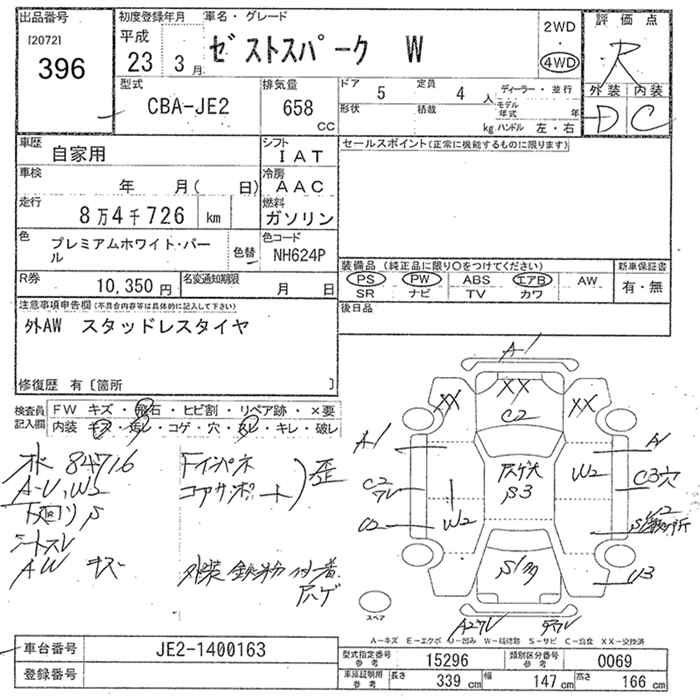 出品番号
[2072]
396
初度登録年月
平成
23年 3月
車名・グレード
ゼストスパーク W
2WD
4WD
評価点
R
外装 内装
D C
型式
CBA-JE2
排気量
658 CC
ドア 5 定員 4 人
ディーラー・並行
形状 積載 kg
モデル年式 年
ハンドル 左・右
車歴
自家用
シフト
IAT
車検 年 月( 日)
冷房
AAC
走行
8万4千726 km
燃料
ガソリン
色
プレミアムホワイト・パール
色替
色コード
NH624P
R券
10,350円
名変通知期限
月 日
セールスポイント(正常に機能するものに限ります)
装備品(純正品に限り○をつけてください)
PS PW ABS エアB AW
SR ナビ TV カワ
新車保証書
有・無
後日品
注意事項申告欄(不具合内容等は具体的に記入して下さい)
外AW スタッドレスタイヤ
修復歴 有〔箇所 〕
検査員記入欄
FW キズ・飛石・ヒビ割・リペア跡・×要
内装 キズ・汚レ・コゲ・穴・スレ・キレ・破レ
84716
A-U, W2
下廻りS
シートスレ
AW キズ
Fインパネ
コアサポート
歪
外装 鉄粉
ハゲ
A1
XX
XX
XX
C2
A1
A1
W2
C3穴
S3
C2
U2
W2
U2
U3
スペア
A-キズ E-エクボ U-凹み W-補修跡 S-サビ C-腐食 XX-交換済
車台番号
JE2-1400163
登録番号
型式指定番号
参考
15296
類別区分番号
参考
0069
車庫証明用
参考
長さ 339 cm 幅 147 cm 高さ 166 cm